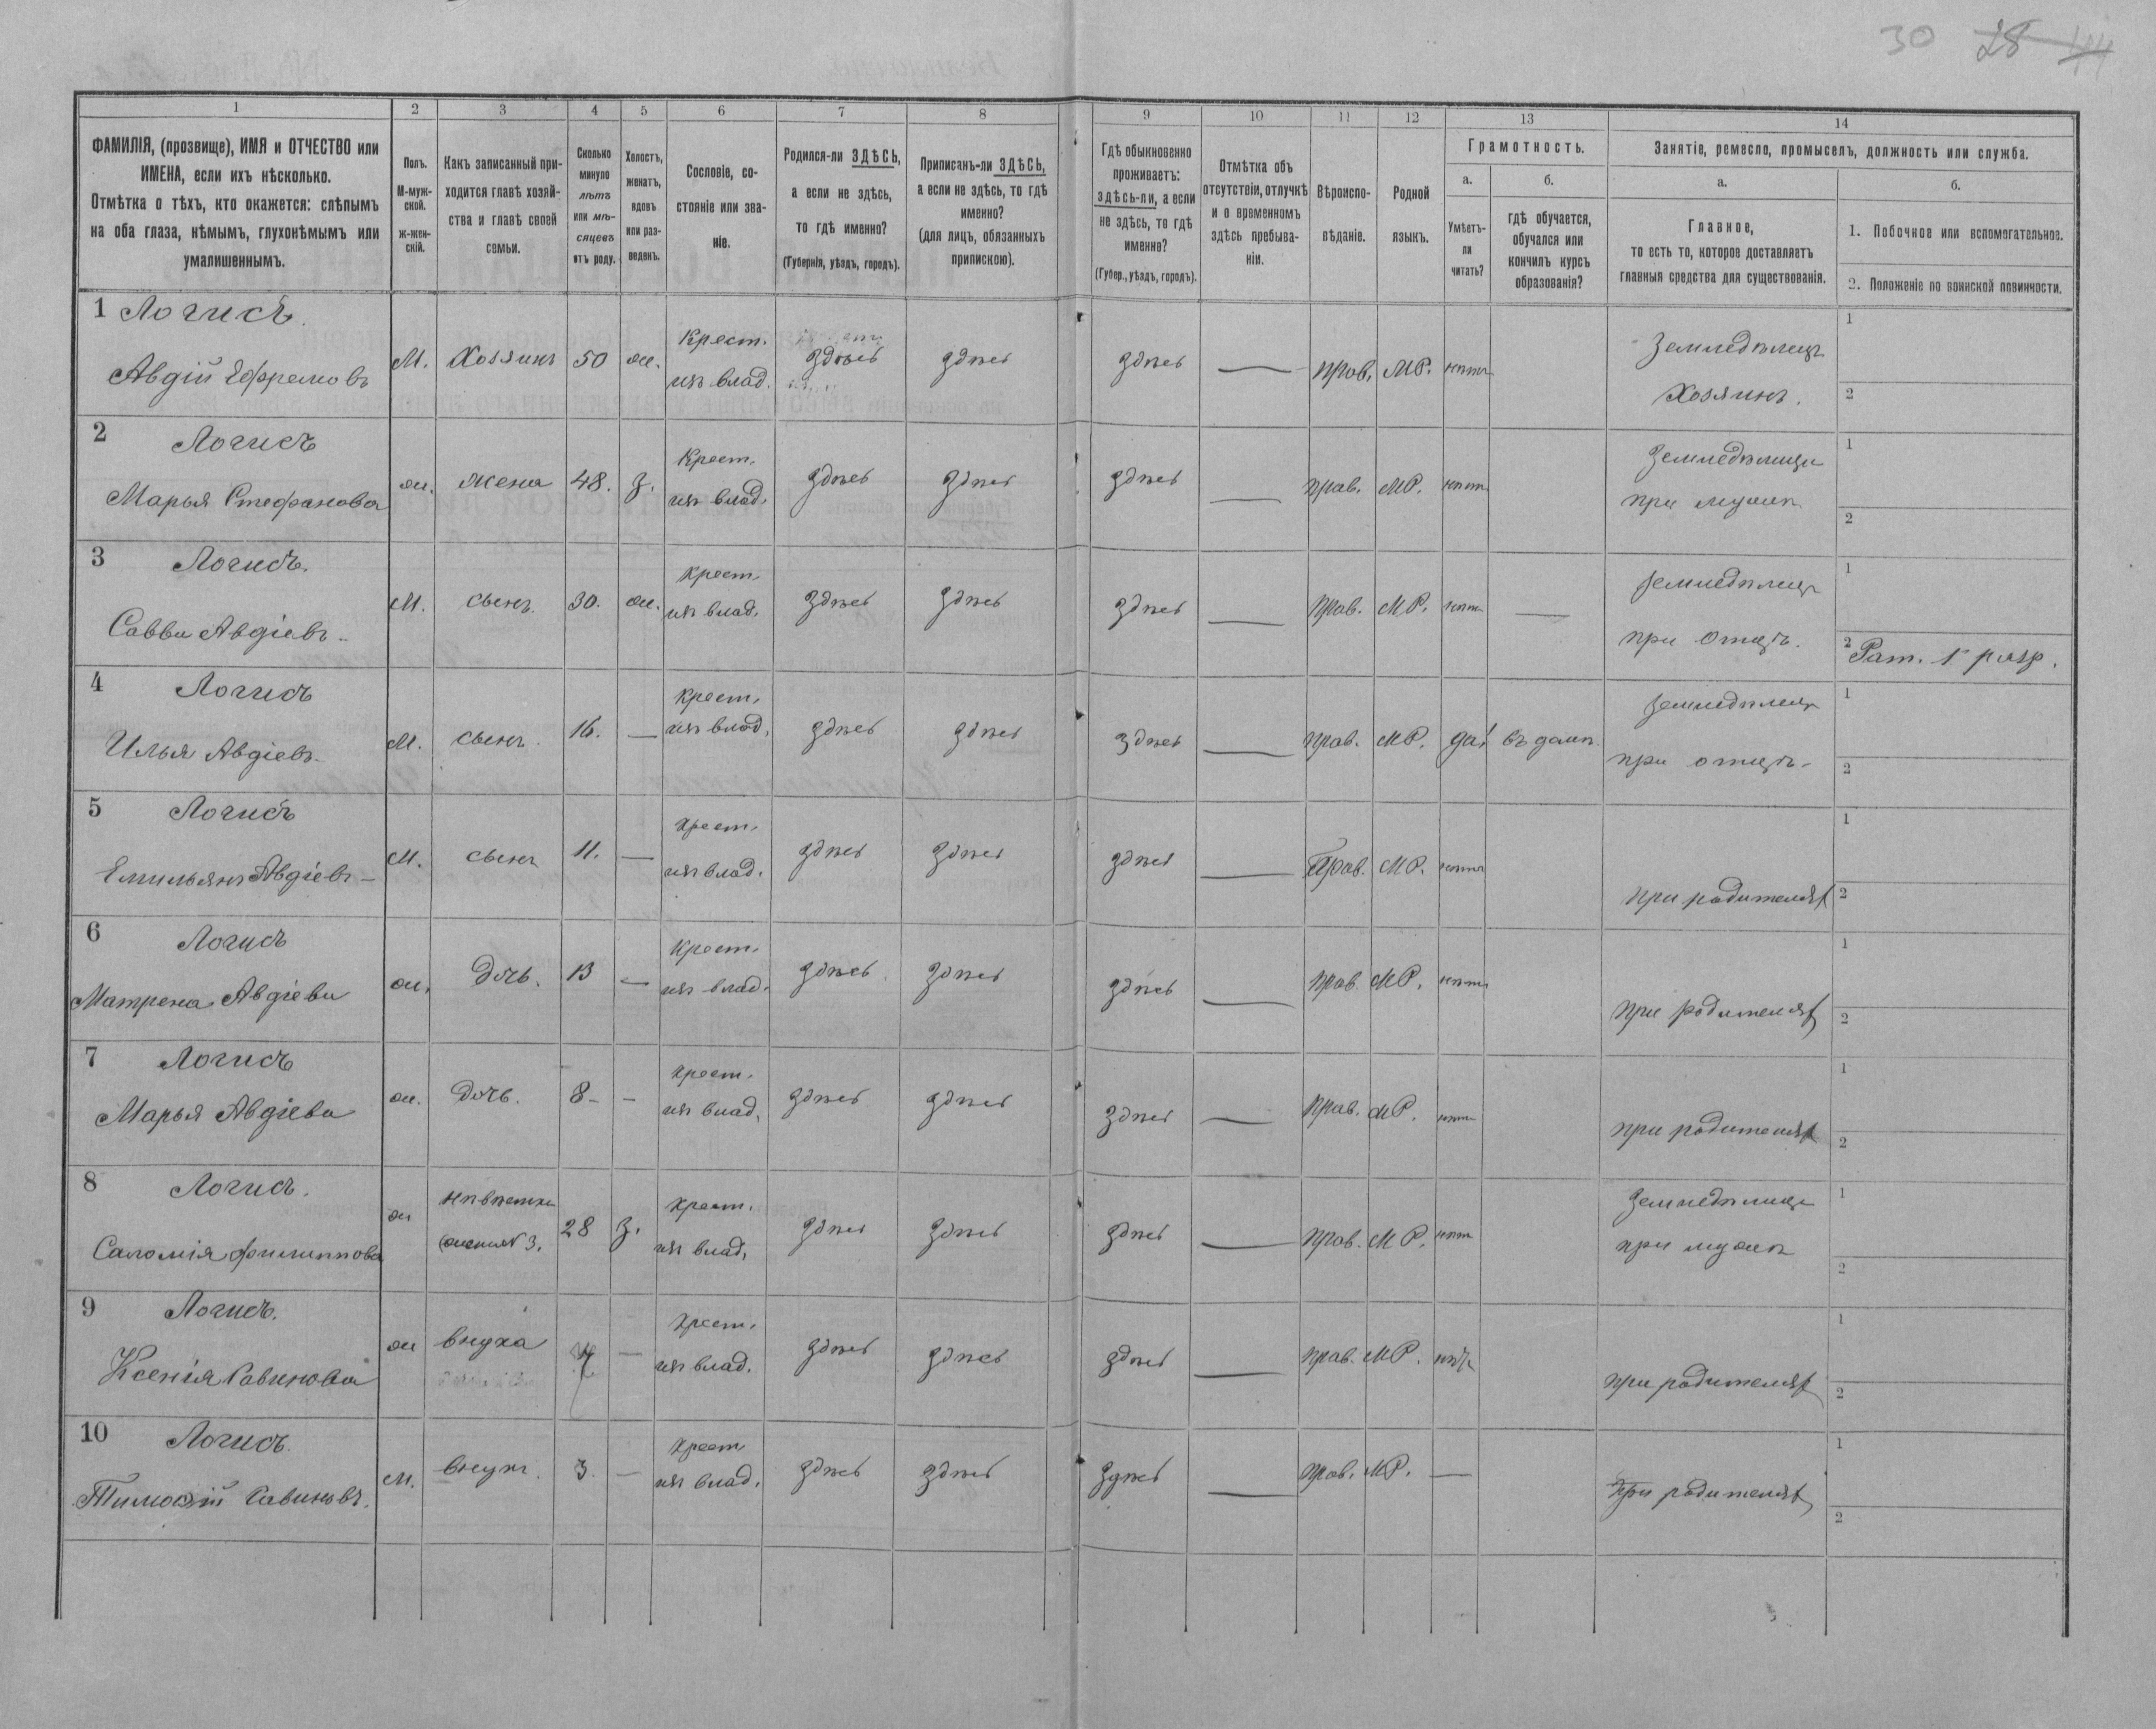 30 28 44
1 2 3 4 5 6 7 8 9 10 11 12 13 14
ФАМИЛІЯ, (прозвище), ИМЯ и ОТЧЕСТВО или
ИМЕНА, если ихъ нѣсколько.
Отмѣтка о тѣхъ, кто окажется: слѣпымъ
на оба глаза, нѣмымъ, глухонѣмымъ или
умалишеннымъ.
Полъ.
М-муж-
ской.
Ж-жен-
скій.
Какъ записанный при-
ходится главѣ хозяй-
ства и главѣ своей
семьи.
Сколько
минуло
лѣтъ
или мѣ-
сяцевъ
отъ роду.
Холостъ,
женатъ,
вдовъ
или раз-
веденъ.
Сословіе, со-
стояніе или зва-
ніе.
Родился-ли ЗДѢСЬ,
а если не здѣсь,
то гдѣ именно?
(Губернія, уѣздъ, городъ).
Приписанъ-ли ЗДѢСЬ,
а если не здѣсь, то гдѣ
именно?
(для лицъ, обязанныхъ
припискою).
Гдѣ обыкновенно
проживаетъ:
здѣсь-ли, а если
не здѣсь, то гдѣ
именно?
(Губер., уѣздъ, городъ).
Отмѣтка объ
отсутствіи, отлучкѣ
и о временномъ
здѣсь пребыва-
ніи.
Вѣроиспо-
вѣданіе.
Родной
языкъ.
Грамотность.
а.
Умѣетъ-
ли
читать?
б.
гдѣ обучается,
обучался или
кончилъ курсъ
образованія?
Занятіе, ремесло, промыселъ, должность или служба.
а.
Главное,
то есть то, которое доставляетъ
главныя средства для существованія.
б.
1. Побочное или вспомогательное.
2. Положеніе по воинской повинности.
1 Логисъ
Авдій Ефремовъ М. Хозяинъ 50 ж. Крест. изъ влад. здѣсь здѣсь здѣсь — прав. МР. нѣтъ Земледѣлецъ Хозяинъ. 1 2
2 Логисъ
Марья Стефанова ж. жена 48. З. Крест. изъ влад. здѣсь здѣсь здѣсь — прав. МР. нѣтъ Земледѣлица при мужѣ 1 2
3 Логисъ.
Савва Авдіевъ М. сынъ 30. ж. Крест. изъ влад. здѣсь здѣсь здѣсь — прав. МР. нѣтъ — Земледѣлецъ при отцѣ. 1 2 Рат. 1 разр.
4 Логисъ
Илья Авдіевъ М. сынъ. 16. — Крест. изъ влад. здѣсь здѣсь здѣсь — прав. МР. да въ домѣ. Земледѣлецъ при отцѣ 1 2
5 Логисъ
Емильянъ Авдіевъ М. сынъ 11. — Крест. изъ влад. здѣсь здѣсь здѣсь — Прав. МР. нѣтъ при родителях 1 2
6 Логисъ
Матрена Авдіева ж. Дочь. 13 — Крест. изъ влад. здѣсь здѣсь здѣсь — прав. МР. нѣтъ при родителях 1 2
7 Логисъ
Марья Авдіева ж. Дочь. 8 — Крест. изъ влад. здѣсь здѣсь здѣсь — прав. МР. нѣтъ при родителях 1 2
8 Логисъ.
Саломія Филиппова ж 3. 28 З. Крест. изъ влад. здѣсь здѣсь здѣсь — прав. МР. нѣтъ Земледѣлица при мужѣ 1 2
9 Логисъ.
Ксенія Савинова ж внука — Крест. изъ влад. здѣсь здѣсь здѣсь — прав. МР. нѣтъ при родителях 1 2
10 Логисъ.
Тимофій Савиновъ. М. внукъ. 3. — Крест изъ влад. здѣсь здѣсь здѣсь — прав. МР. — При родителях 1 2